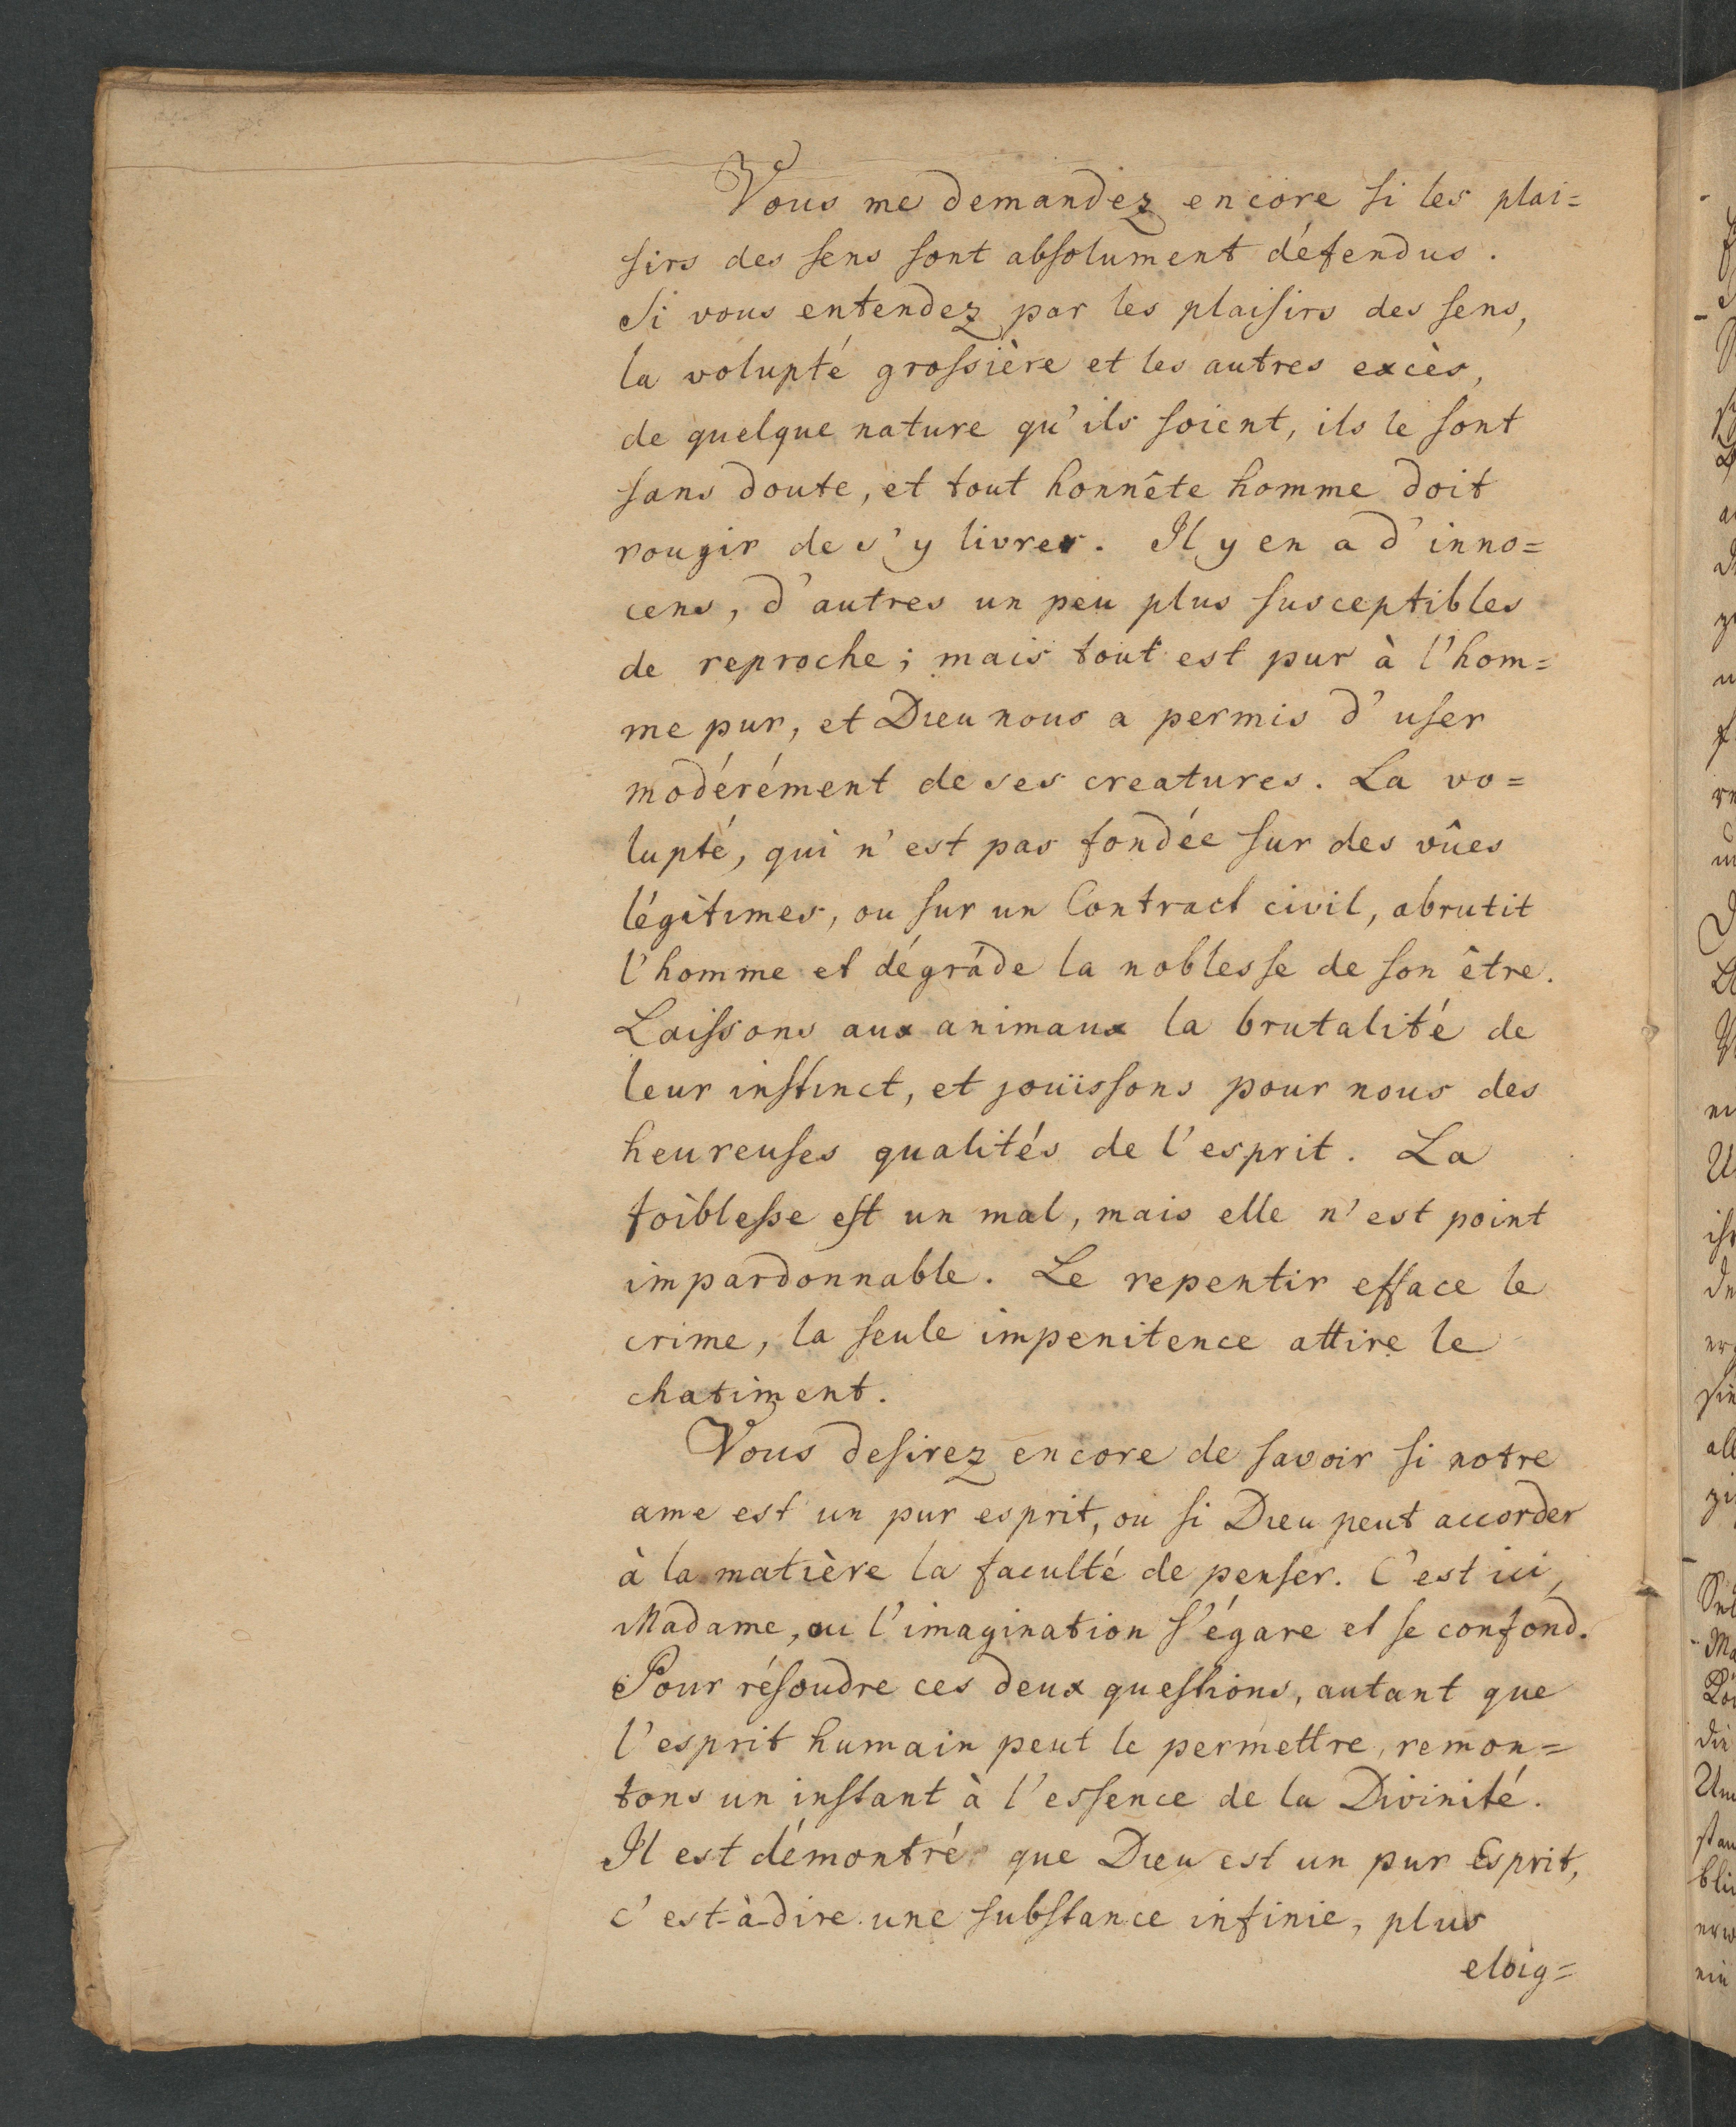 Vous me demandez encore si les plai=
sirs des sens sont absolument défendus.
Si vous entendez par les plaisirs des sens,
la volupté grossière et les autres excès,
de quelque nature qu'ils soient, ils le sont
sans doute, et tout honnête homme doit
rougir de s'y livrer. Il y en a d'inno=
cens, d'autres un peu plus susceptibles
de reproche; mais tout est pur à l'hom=
me pur, et Dieu nous a permis d'user
modérément de ses creatures. La vo=
lupté, qui n'est pas fondée sur des vûes
légitimes, ou sur un Contract civil, abrutit
l'homme et dégráde la noblesse de son être.
Laissons aux animaux la brutalité de
leur instinct, et jouïssons pour nous des
heureuses qualités de l'esprit. La
foiblesse est un mal, mais elle n'est point
impardonnable. Le repentir efface le
crime, la seule impenitence attire le
chatiment.
Vous desirez encore de savoir si notre
ame est un pur esprit, ou si Dieu peut accorder
à la matière la faculté de penser. C'est ici,
Madame, ou l'imagination s'égare et se confond.
Pour résoudre ces deux questions, autant que
l'esprit humain peut le permettre, remon=
tons un instant à l'essence de la Divinité.
Il est démontré que Dieu est un pur Esprit,
c'est-à-dire une substance infinie, plus
eloig=